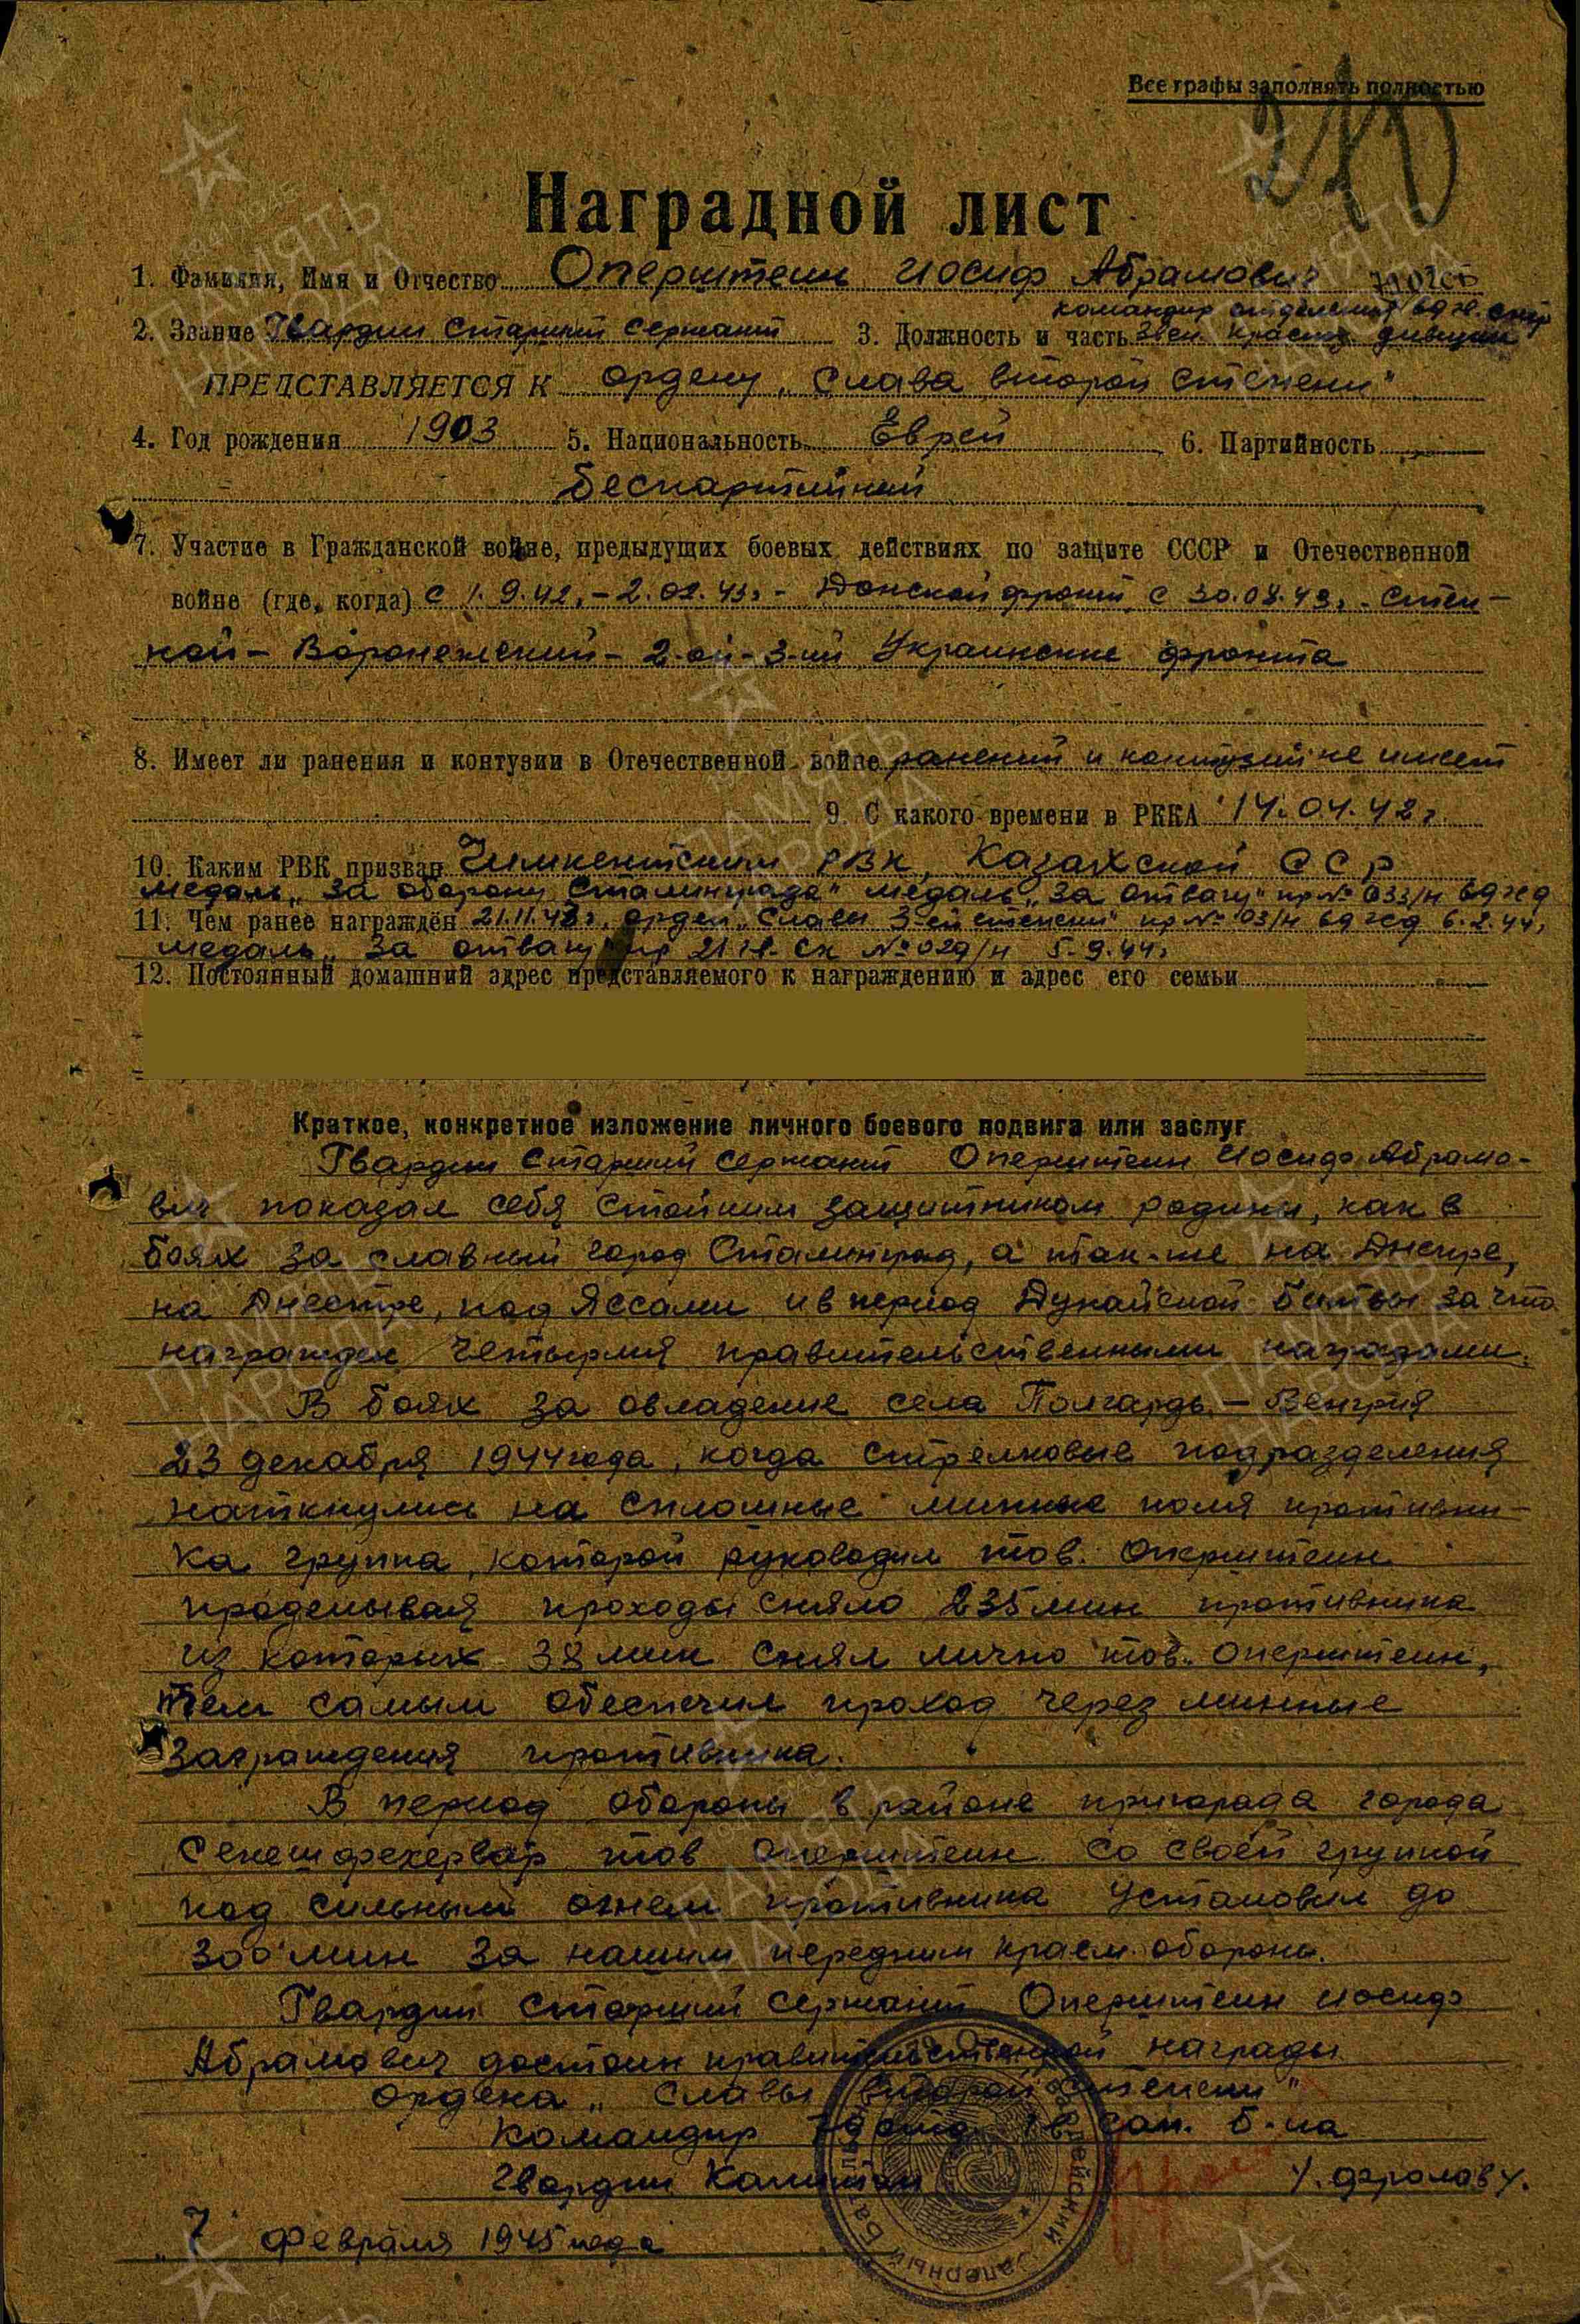 Все графы заполнять полностью
210
Наградной лист
1. Фамилия, Имя и Отчество Оперштейн Иосиф Абрамович
командир отделения 69 гв.
2. Звание Гвардии Старший сержант 3. Должность и часть Звен. Красно. дивизии
ПРЕДСТАВЛЯЕТСЯ К ордену „Слава второй степени"
4. Год рождения 1903 5. Национальность Еврей 6. Партийность
беспартийный
7. Участие в Гражданской войне, предыдущих боевых действиях по защите СССР и Отечественной
войне (где, когда) с 1.9.42. – 2.02.43г. - Донской фронт, с 30.08.43г. - Степ-
ной – Воронежский – 2-ой – 3-ий Украинские фронта
8. Имеет ли ранения и контузии в Отечественной войне ранений и контузий не имеет
9. С какого времени в РККА 14.04.42г.
10. Каким РВК призван Чимкентским РВК, Казахской ССР
медаль „За оборону Сталинграда" медаль „За отвагу" пр № 033/н 69 гсд
11. Чем ранее награждён 21.11.43г. орден „Славы 3-ей степени" пр № 03/н 69 гсд 6.2.44г
медаль „За отвагу" пр 21 гв. ск № 029/н 5.9.44г.
12. Постоянный домашний адрес представляемого к награждению и адрес его семьи
Краткое, конкретное изложение личного боевого подвига или заслуг
Гвардии Старший сержант Оперштейн Иосиф Абрамо-
вич показал себя стойким защитником родины, как в
боях за славный город Сталинград, а так-же на Днепре,
на Днестре, под Яссами и в период Дунайской битвы за что
награжден четырмя правительственными наградами.
В боях за овладение села Полгарды – Венгрия
23 декабря 1944 года, когда стрелковые подразделения
наткнулись на сплошные минные поля противни-
ка группа, которой руководил тов. Оперштейн
проделывая проходы сняло 235 мин противника
из которых 38 мин снял лично тов. Оперштейн,
тем самым обеспечил проход через минные
заграждения противника.
В период обороны в районе пригорода города
Секешфехервар тов Оперштейн со своей группой
под сильным огнем противника установил до
300 мин за нашим передним краем обороны.
Гвардии Старший сержант Оперштейн Иосиф
Абрамович достоин правительственной награды
ордена „Славы второй степени"
Командир 79 отд. гв. сап. б-на
гвардии Капитан /. Фролов /.
„7" февраля 1945 года